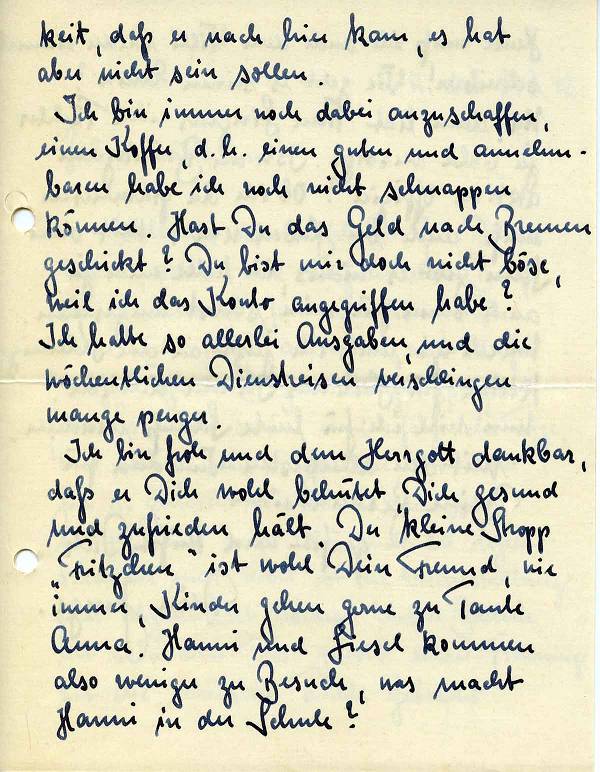 keit, daß er nach hier kam, es hat
aber nicht sein sollen.
Ich bin immer noch dabei anzuschaffen,
einen Koffer, d.h. einen guten und annehm-
baren habe ich noch nicht schnappen
können. Hast Du das Geld nach Bremen
geschickt? Du bist mir doch nicht böse,
weil ich das Konto angegriffen habe?
Ich hatte so allerlei Ausgaben, und die
wöchentlichen Dienstreisen verschlingen
mange penger.
Ich bin froh und dem Herrgott dankbar,
daß er Dich wohl behütet, Dich gesund
und zufrieden hält. Der kleine Stropp
„Fritzchen" ist wohl Dein Freund, wie
immer, Kinder gehen gerne zu Tante
Anna. Hanni und Liesel kommen
also weniger zu Besuch, was macht
Hanni in der Schule?